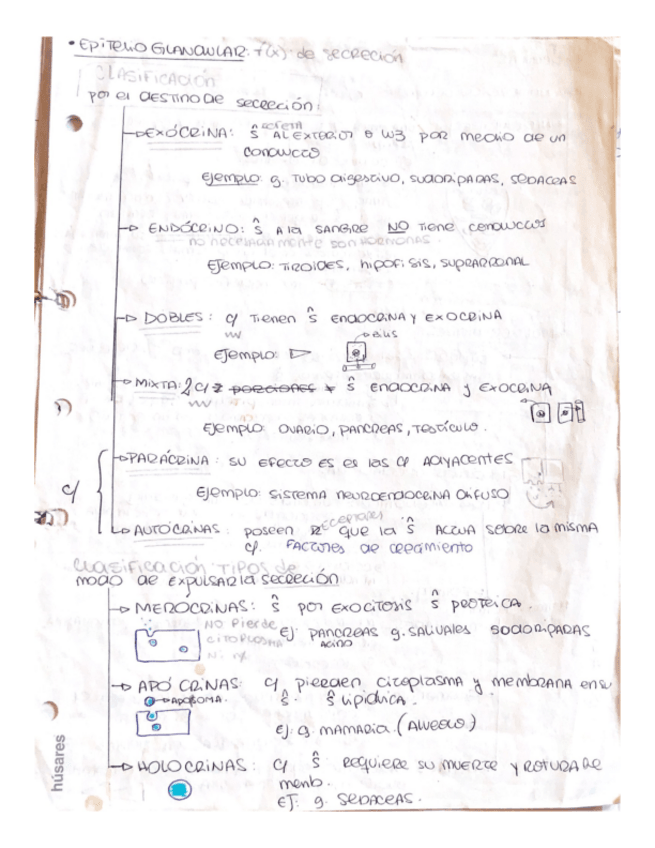 • EPITELIO GLANDULAR: f(x) de secreción
CLASIFICACIÓN
por el DESTINO DE secreción:
EXÓCRINA: ŝ AL EXTERIOR o por medio de un
conducto
Ejemplo: g. TUBO digestivo, sudoríPARAS, SEBACEAS
ENDÓCRINO: ŝ A la SANGRE NO Tiene conductos
no necesariamente son HORMONAS.
Ejemplo: TIROIDES, hipofisis, SUPRARRENAL
DOBLES: c/ Tienen ŝ ENDOCRINA Y EXOCRINA
Ejemplo:
MIXTA: 2 c/ ŝ ENDOCRINA y EXOCRINA
Ejemplo: OVARIO, PANCREAS, TESTÍCULO.
c/
PARÁCRINA: SU EFECTO ES es las ADYACENTES
Ejemplo: SISTEMA NEUROENDOCRINA DIFUSO
AUTOCRINAS: poseen RECEPTORES que la ŝ ACTUA sobre la misma
FACTORES de crecimiento
CLASIFICACIÓN TIPOS de
modo de EXPULSAR la Secreción
MEROCRINAS: ŝ por EXOCITOSIS ŝ PROTEICA.
NO Pierde
CITOPLASMA
Ej: PANCREAS g. SALIVALES SODORIPARAS
ACINO
APÓCRINAS: c/ pierden citoplasma y membrana en su
ŝ. ŝ lipídica.
Ej: g. MAMARIA. (Alveolo)
HOLOCRINAS: c/ ŝ REQUIERE SU MUERTE Y ROTURA DE
memb.
EJ: g. SEBACEAS.
húsares